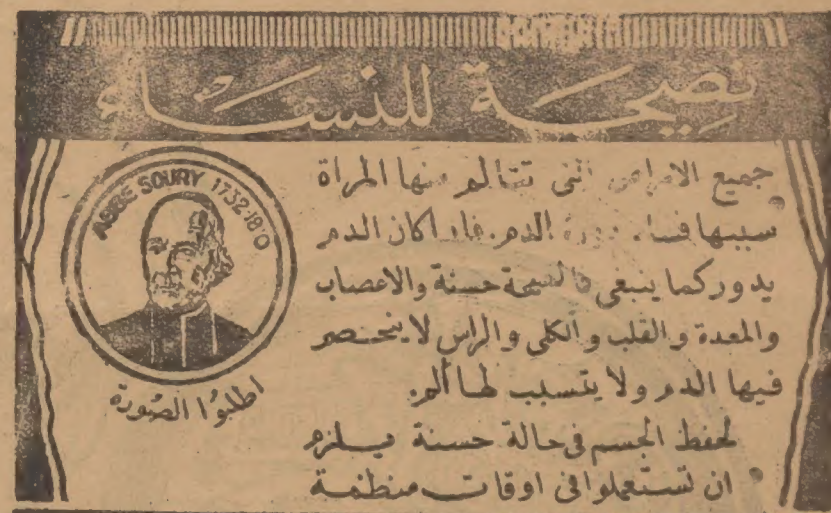 نصيحة للنساء
ABBE SOURY 1732-1810
جميع الامراض التى تتالم منها المراة
سببها فساد دورة الدم. فاذا كان الدم
يدور كما ينبغى فالصحة حسنة والاعصاب
والمعدة والقلب والكلى والراس لا ينحصر
فيها الدم ولا يتسبب لها ألم.
لحفظ الجسم فى حالة حسنة يلزم
ان تستعملوا فى اوقات منظمة
اطلبوا الصورة